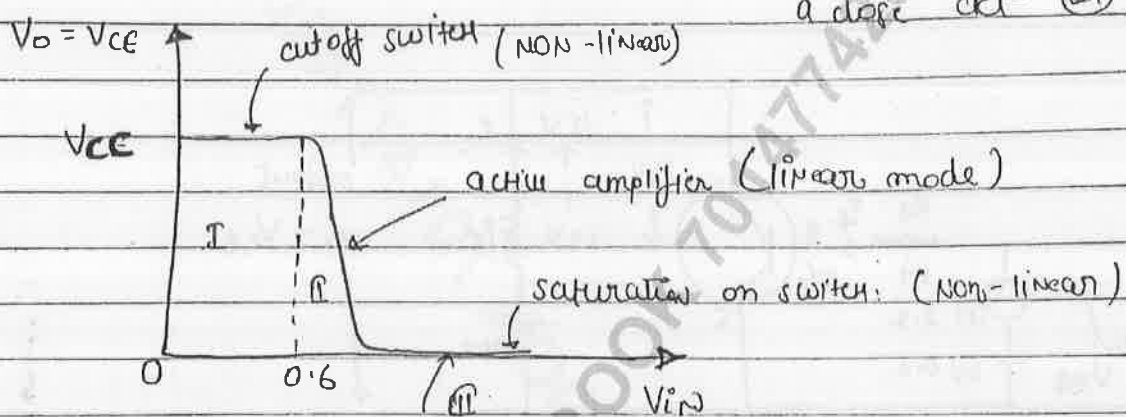 a close ckt
V₀ = VCE
cutoff switch (NON-linear)
VCE
active amplifier (linear mode)
I
II
saturation on switch: (Non-linear)
0
0.6
III
VIN